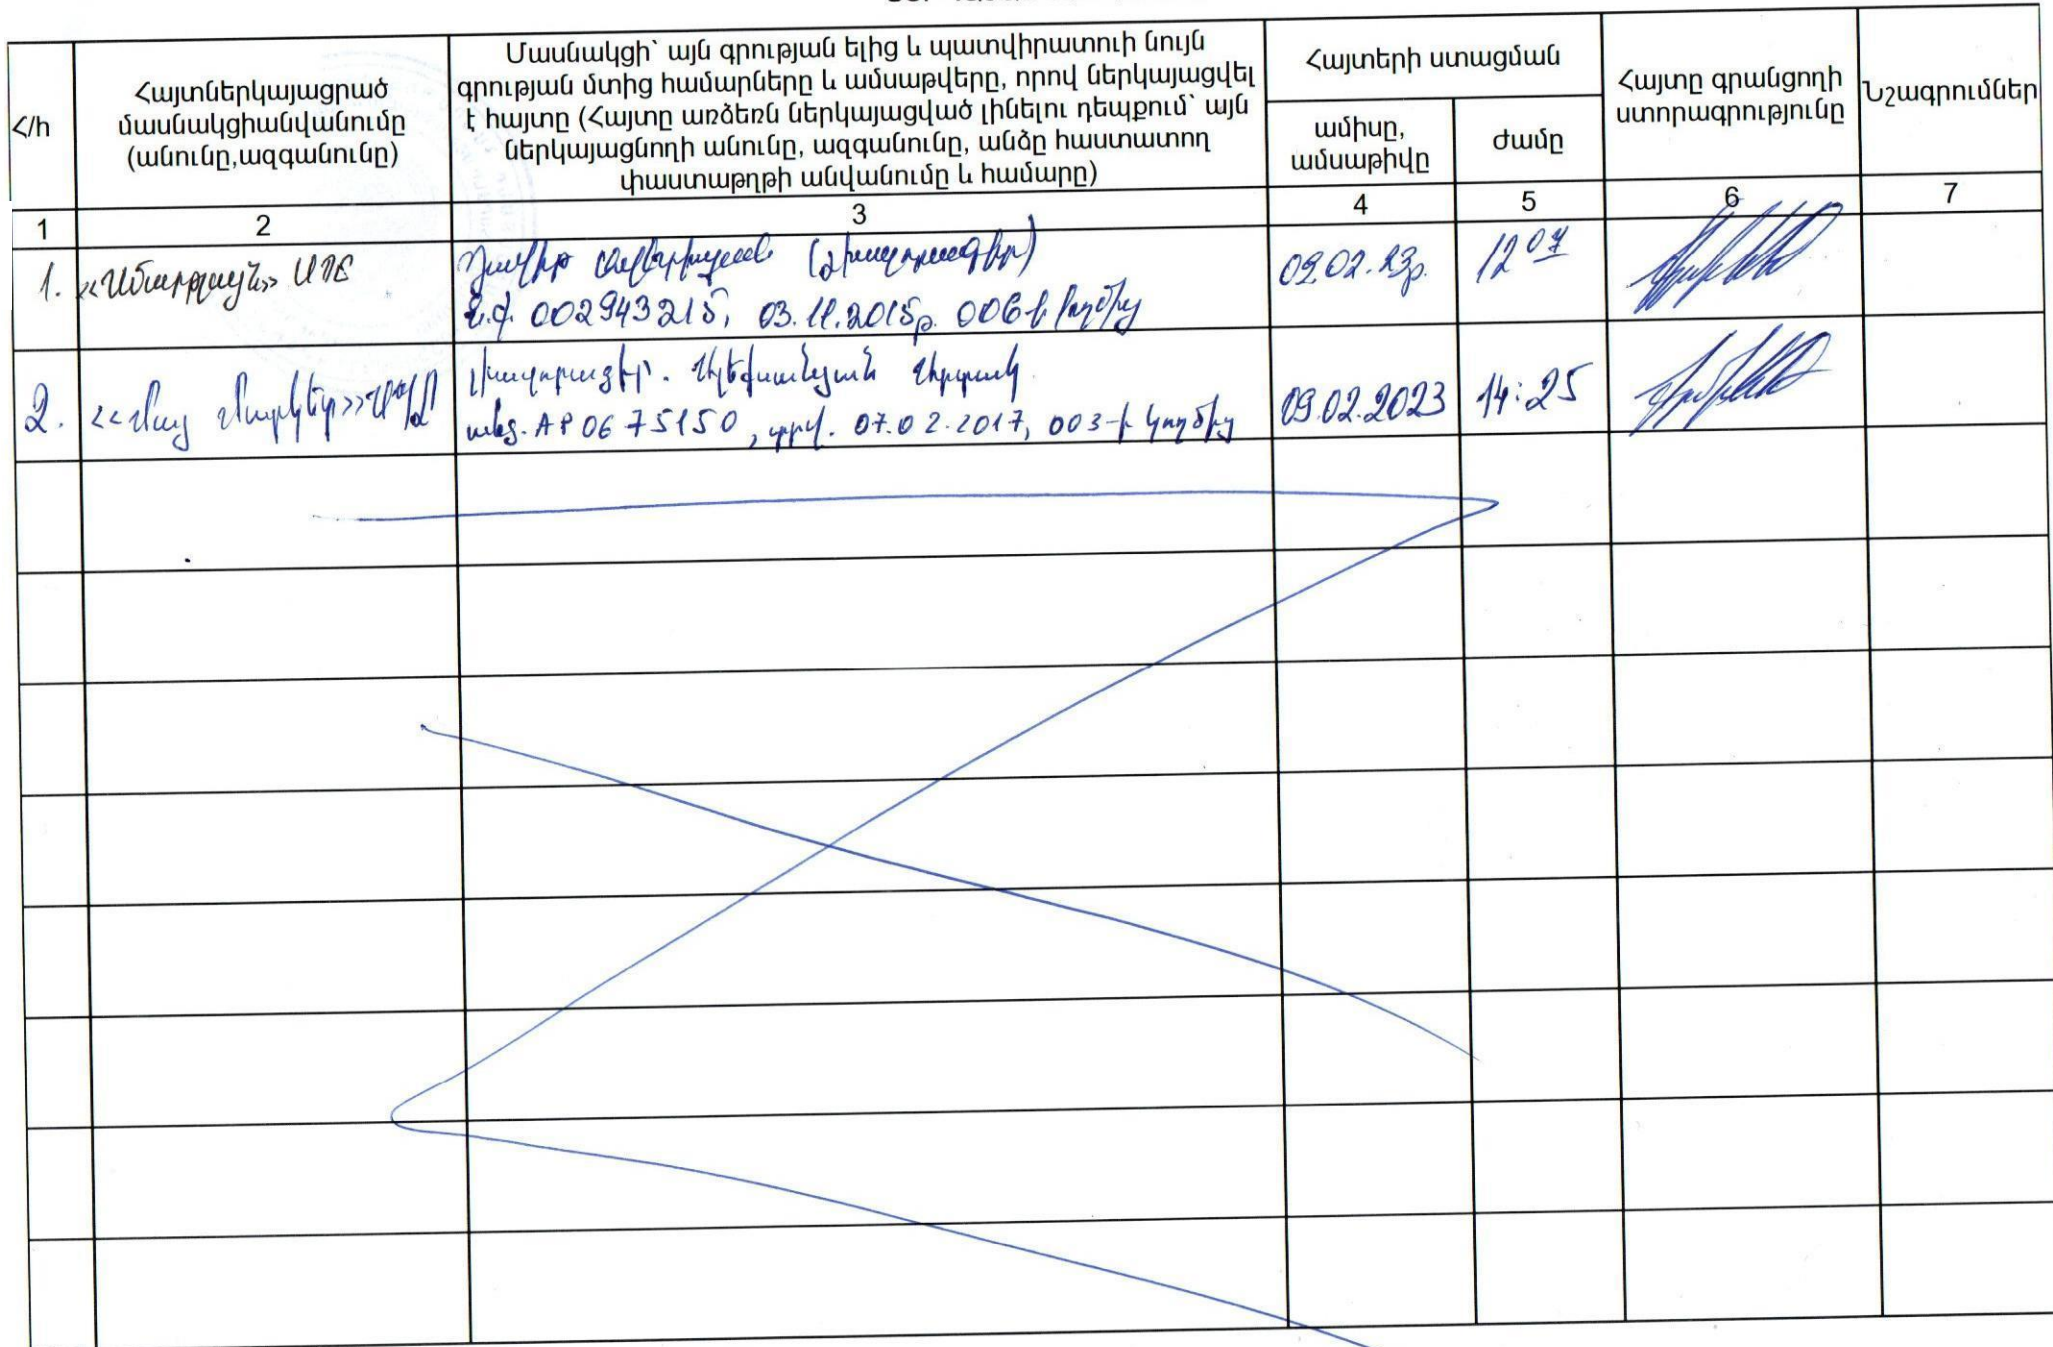 Հ/հ
Հայտներկայացրած
մասնակցիանվանումը
(անունը,ազգանունը)
Մասնակցի` այն գրության ելից և պատվիրատուի նույն
գրության մտից համարները և ամսաթվերը, որով ներկայացվել
է հայտը (Հայտը առձեռն ներկայացված լինելու դեպքում` այն
ներկայացնողի անունը, ազգանունը, անձը հաստատող
փաստաթղթի անվանումը և համարը)
Հայտերի ստացման
ամիսը,
ամսաթիվը
ժամը
Հայտը գրանցողի
ստորագրությունը
Նշագրումներ
1 2 3 4 5 6 7
1. ՍՊԸ
Դավիթ (լիազորագիր)
002943215, 03.11.2015թ. 006-ի կողմից
09.02.23թ. 12 07
2.
լիազորագիր.
անձ. AP 0675150, տրվ. 07.02.2017, 003-ի կողմից
09.02.2023 14:25